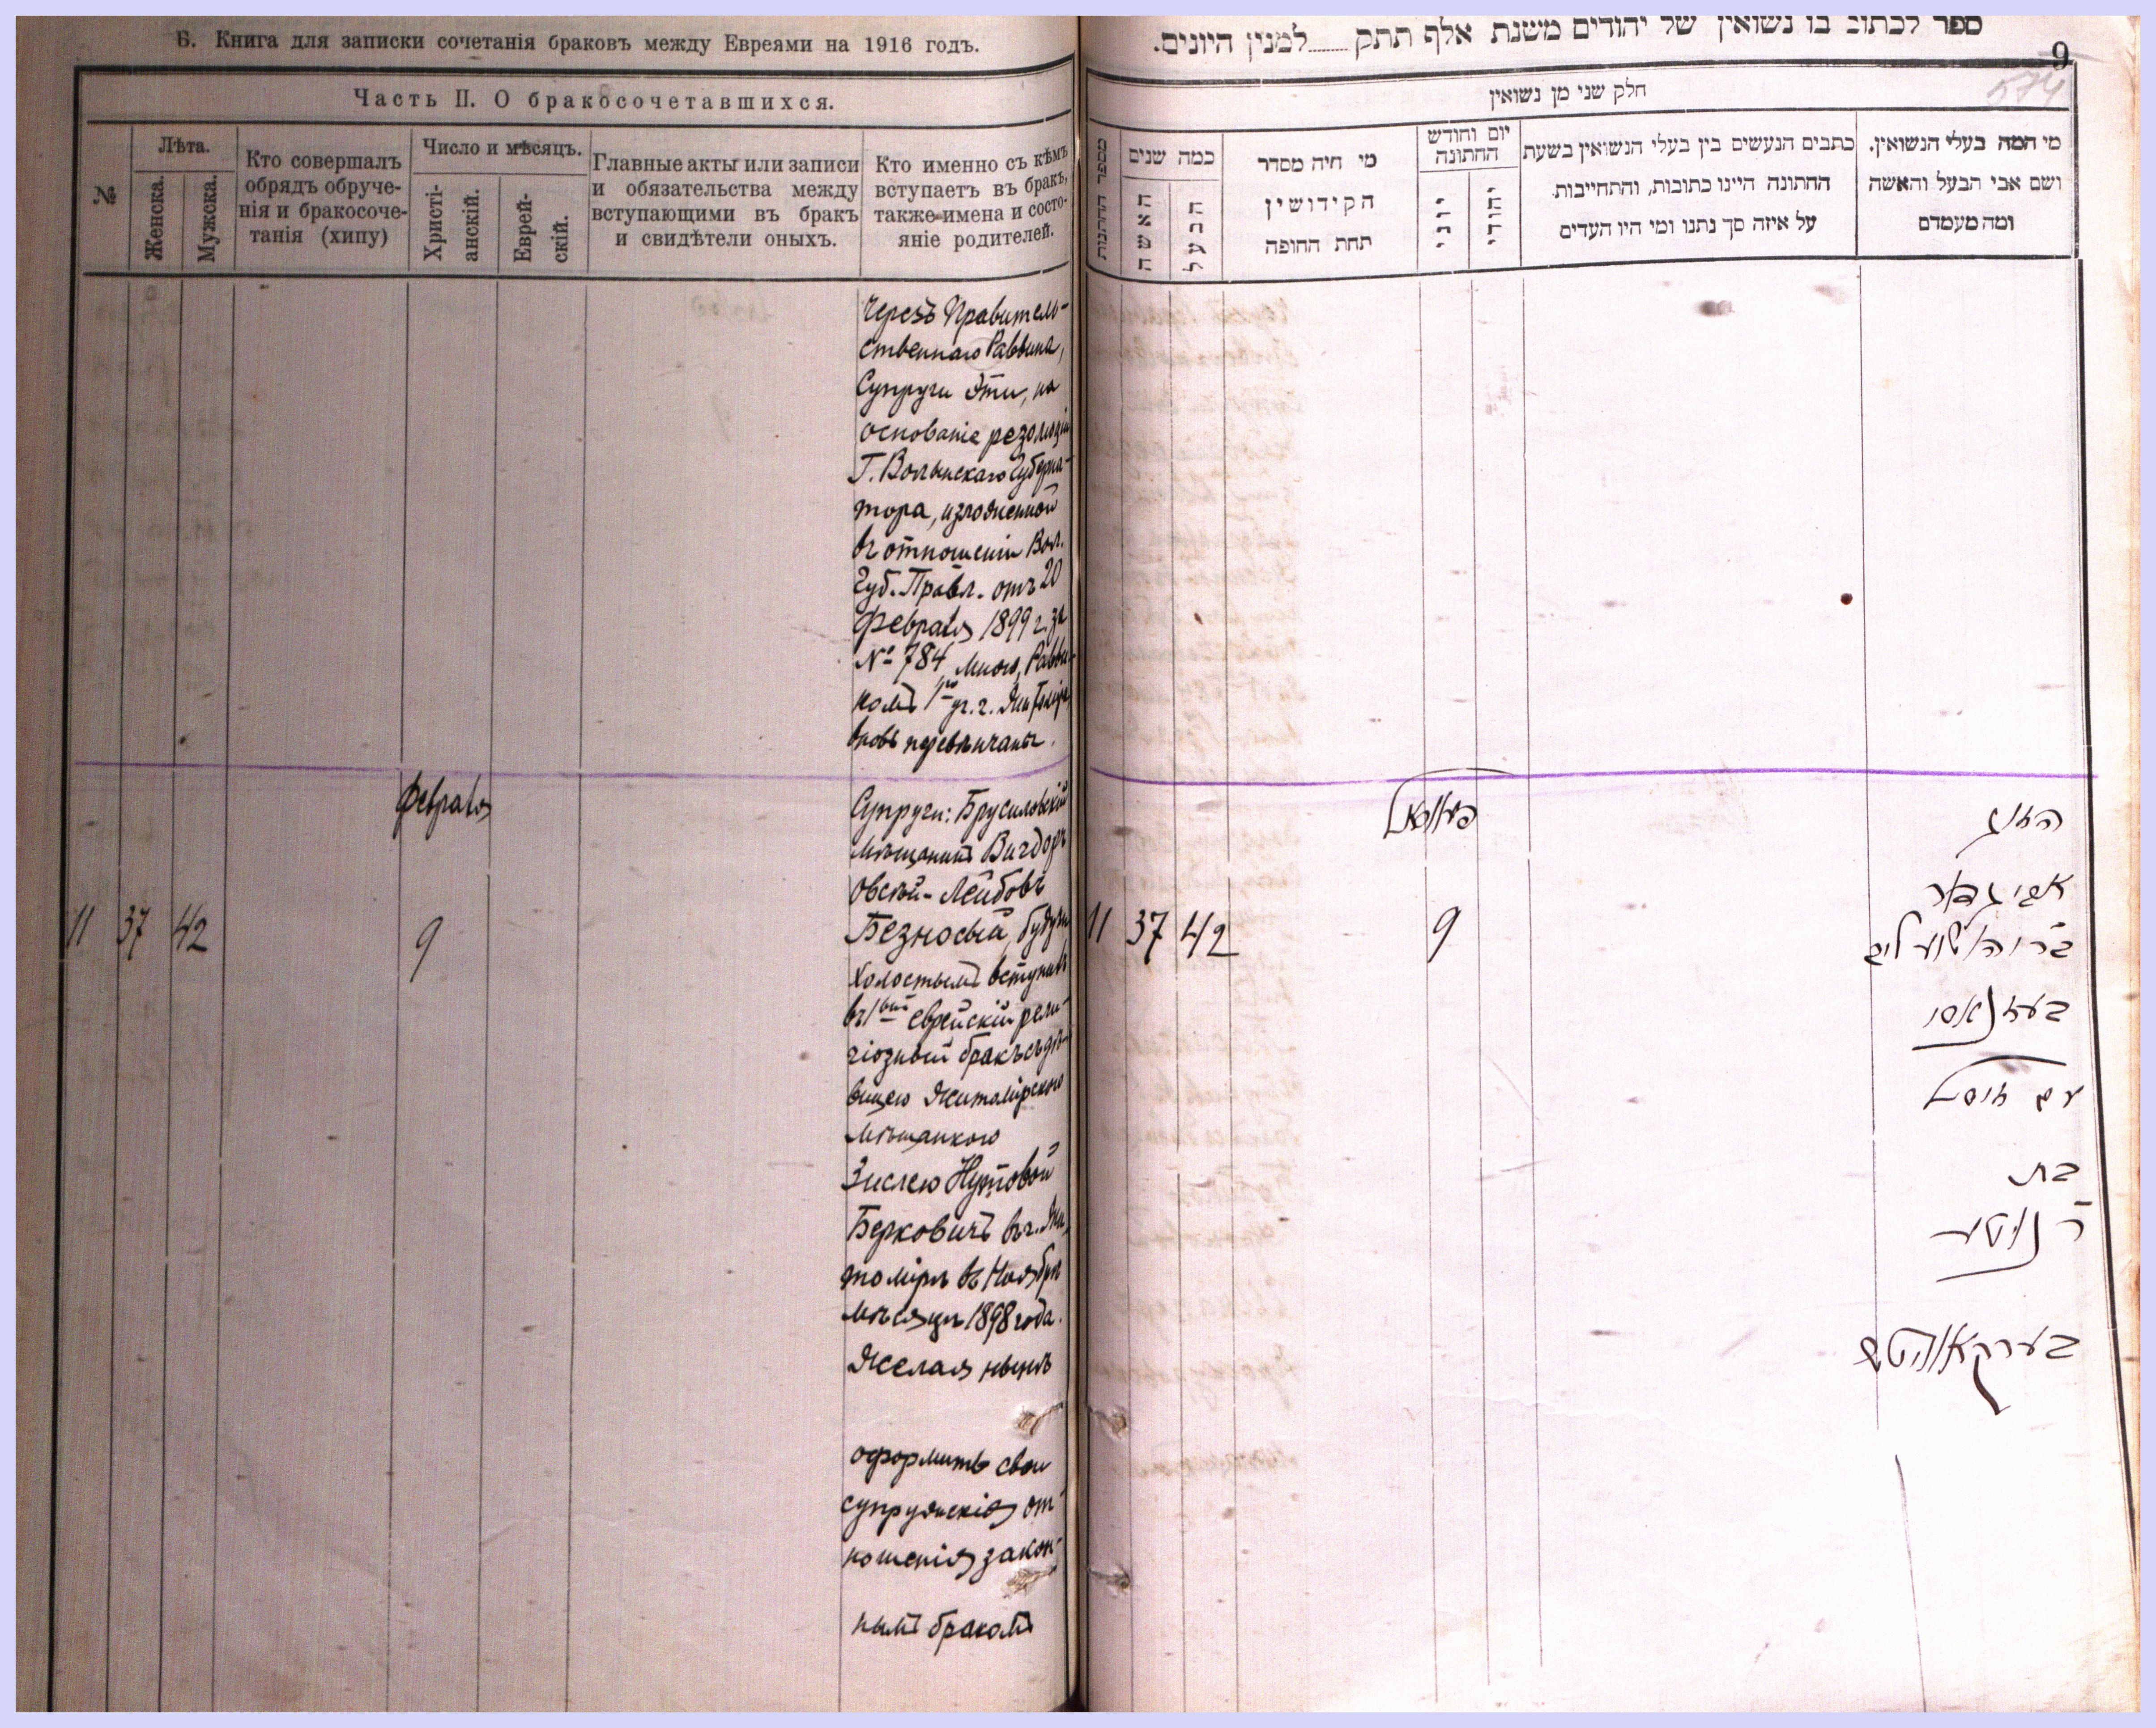 Б. Книга для записки сочетанія браковъ между Евреями на 1916 годъ.
Часть II. О бракосочетавшихся.
№
Лѣта.
Женска.
Мужска.
Кто совершалъ
обрядъ обруче-
нія и бракосоче-
танія (хипу)
Число и мѣсяцъ.
Христі-
анскій.
Еврей-
скій.
Главные акты или записи
и обязательства между
вступающими въ бракъ
и свидѣтели оныхъ.
Кто именно съ кѣмъ
вступаетъ въ бракъ,
также имена и состо-
яніе родителей.
Черезъ Правитель-
ственнаго Раввина,
Супруги Эти, на
основаніе резолюціи
Г. Волынскаго Губерна-
тора, изложенной
въ отношеніи Вол.
Губ. Правл. отъ 20
Февраля 1899 г. за
№ 784 мною, Равви-
вновь перевѣнчаны.
Февраля
11 37 42 9
Супруги: Брусиловскій
мѣщанинъ Вигдоръ
Овсѣй-Лейбовъ
Безносый, будучи
холостымъ вступилъ
въ 1вый еврейскій рели-
гіозный бракъ съ дѣ-
вицею Житомірскою
мѣщанкою
Зислею Нутовой
Берковичъ въ г. Жи-
томірѣ въ Ноябрѣ
мѣсяцѣ 1898 года.
Желая нынѣ
оформить свои
супружескія от-
ношенія закон-
нымъ бракомъ
ספר לכתוב בו נשואין של יהודים משנת אלף תתק למנין היונים.
9
574
חלק שני מן נשואין
מספר החתונות
כמה שנים
האשה
הבעל
מי היה מסדר
הקידושין
תחת החופה
יום וחודש
החתונה
יוני
יהודי
כתבים הנעשים בין בעלי הנשואין בשעת
החתונה היינו כתובות, והתחייבות
על איזה סך נתנו ומי היו העדים
מי המה בעלי הנשואין,
ושם אבי הבעל והאשה
ומה מעמדם
11 37 42 9
הזוג
אביגדור
בר יהושע ליב
בעזנאסי
עם זיסל
בת
ר' נוטע
בערקאוויטש